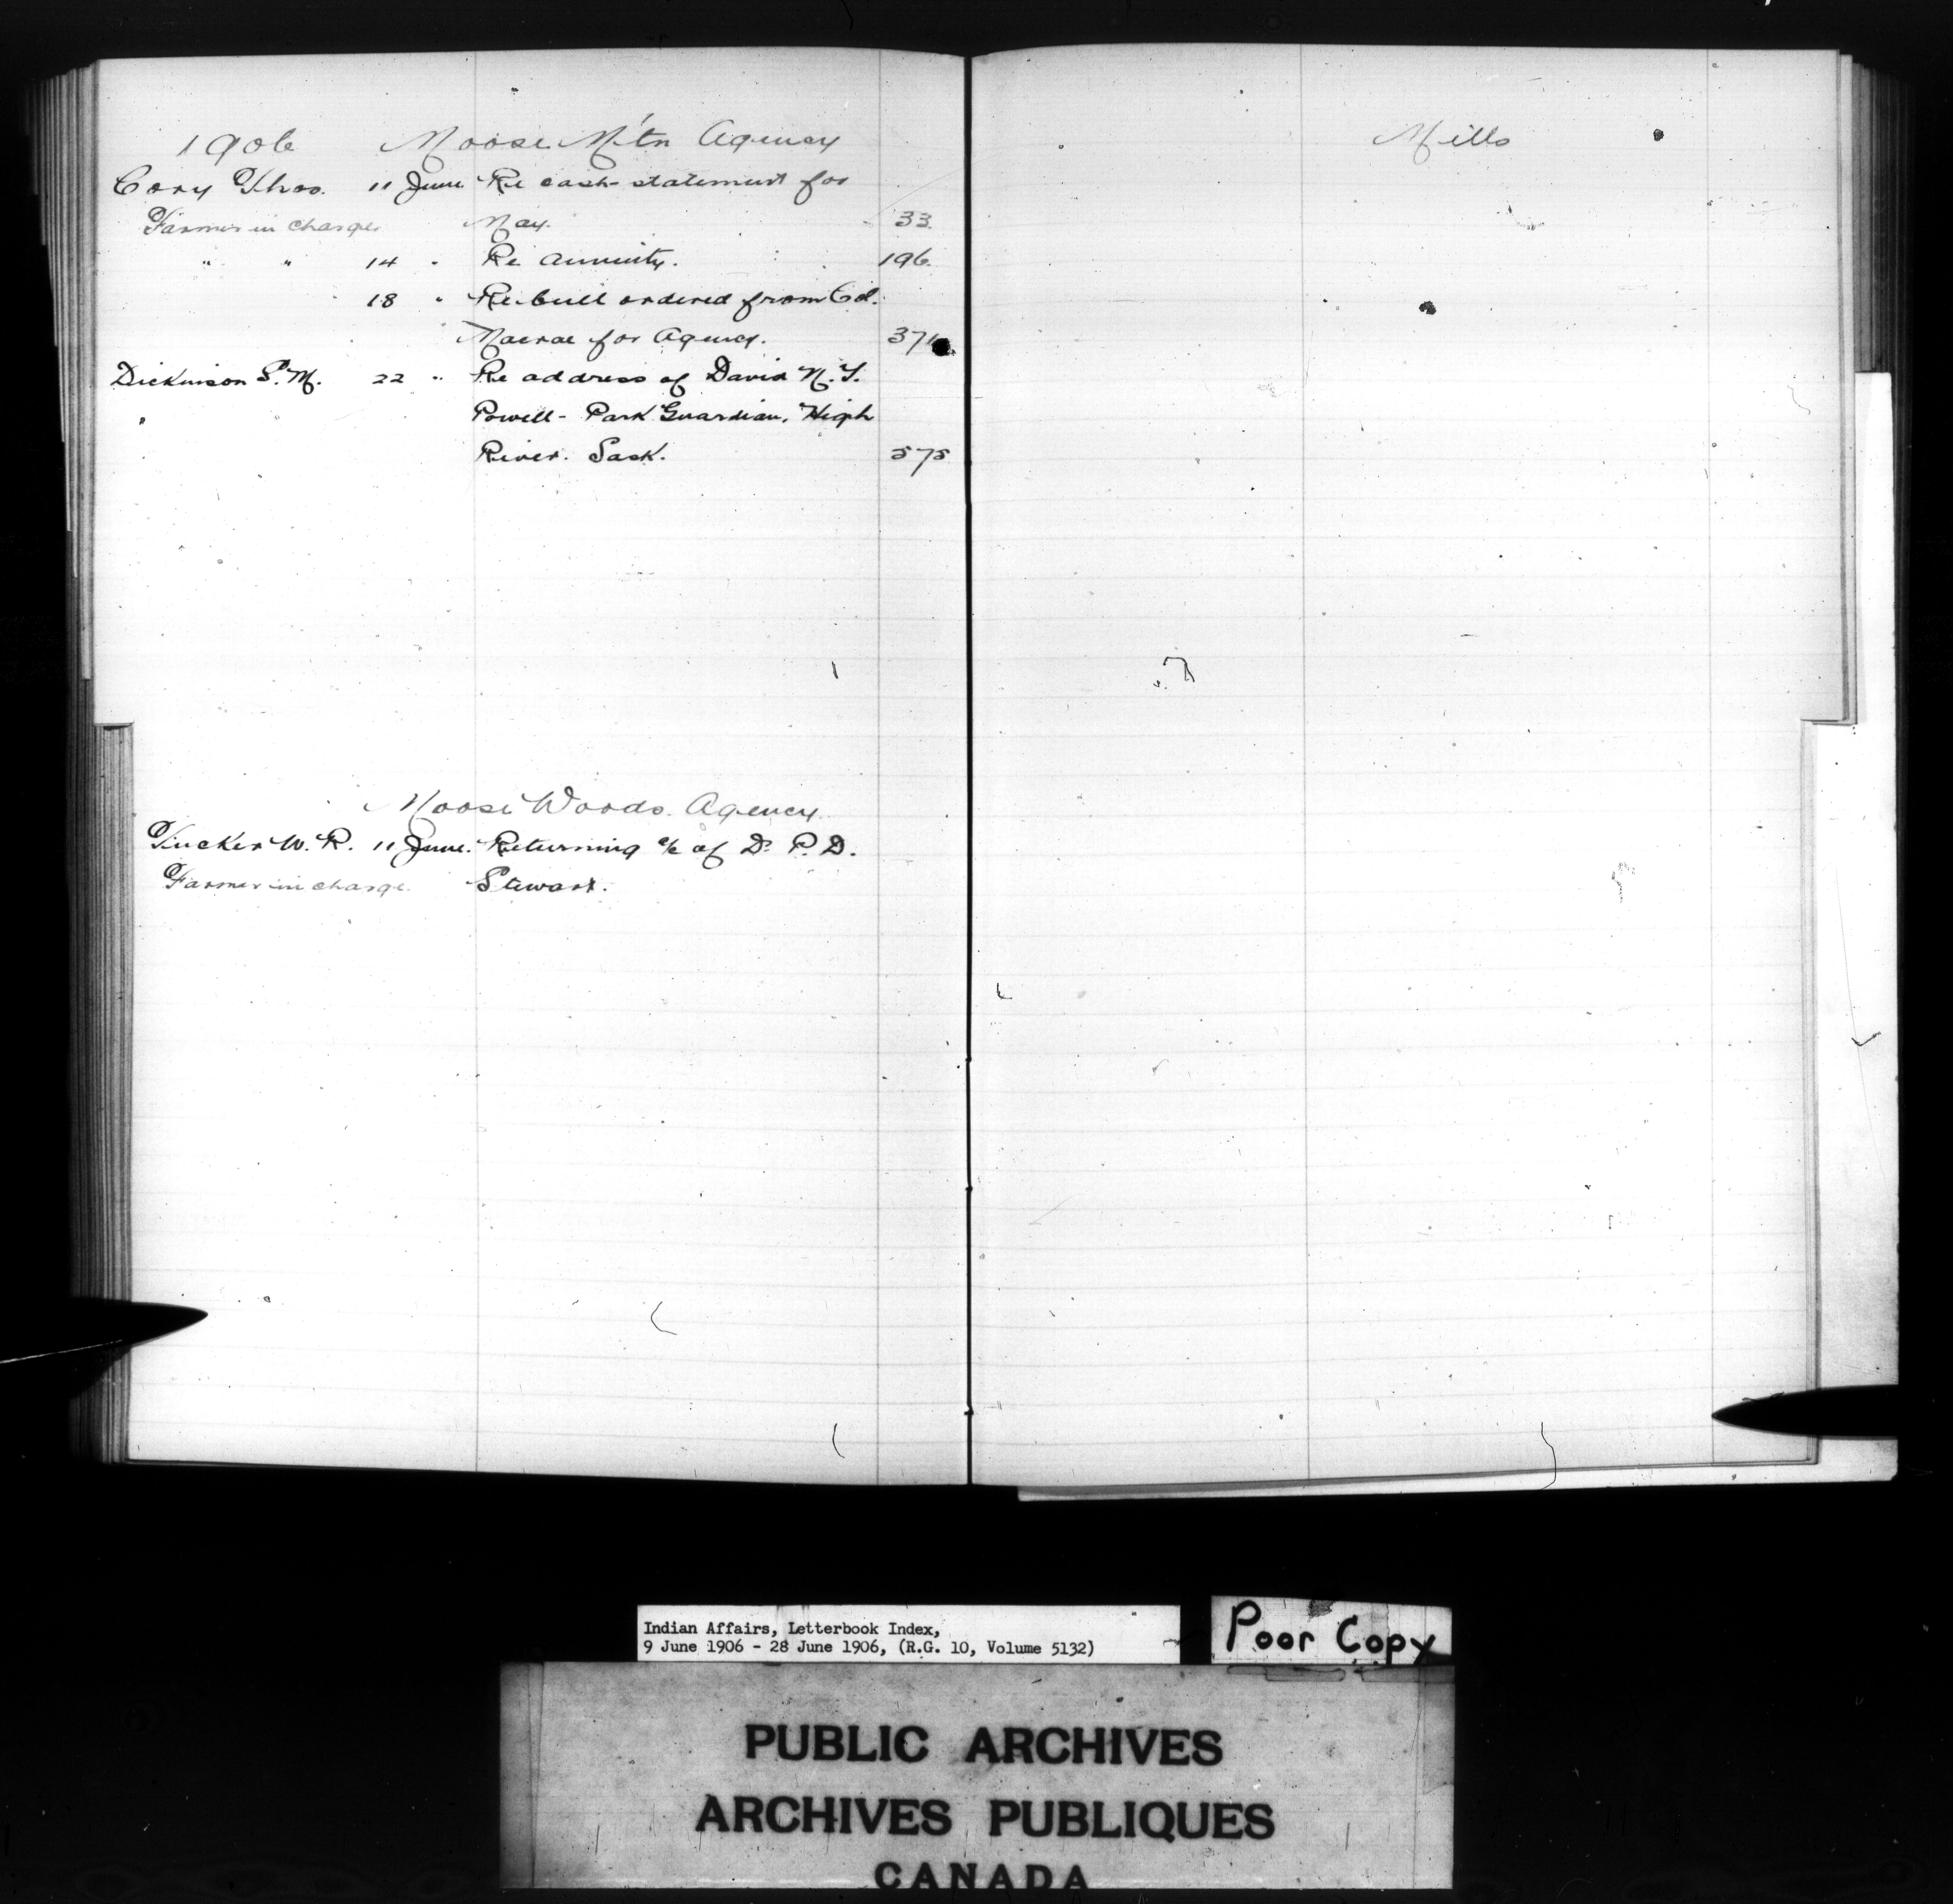 1906 Moose M'tn Agency
Cory Thos. 11 June Re cash statement for
Farmer in charge May. 33
" " 14 " Re annuity. 196
18 " Re bull ordered from Col.
Macrae for Agency. 371
Dickinson S. M. 22 " Re address of David N. T.
" Powell - Park Guardian, High
River. Sask. 575
Moose Woods Agency
Tucker W. R. 11 June. Returning a/c of Dr P. D.
Farmer in charge. Stewart.
Mills
Indian Affairs, Letterbook Index,
9 June 1906 - 28 June 1906, (R.G. 10, Volume 5132)
Poor Copy
PUBLIC ARCHIVES
ARCHIVES PUBLIQUES
CANADA